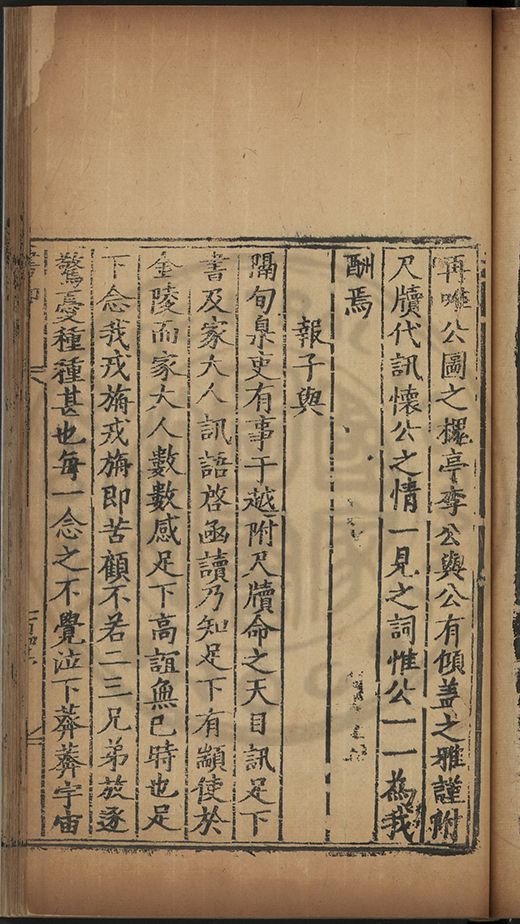 再唯公圖之樸亭李公與公有傾蓋之雅謹附
尺牘代訊懷公之情一見之詞惟公一一為我
酬焉
報子與
隔旬臬吏有事于越附尺牘命之天目訊足下
書及家大人訊語啓函讀乃知足下有顓使於
金陵而家大人數數感足下高誼無已時也足
下念我戎旃戎旃即苦顧不若二三兄弟放逐
驚憂種種甚也每一念之不覺泣下莽莽宇宙